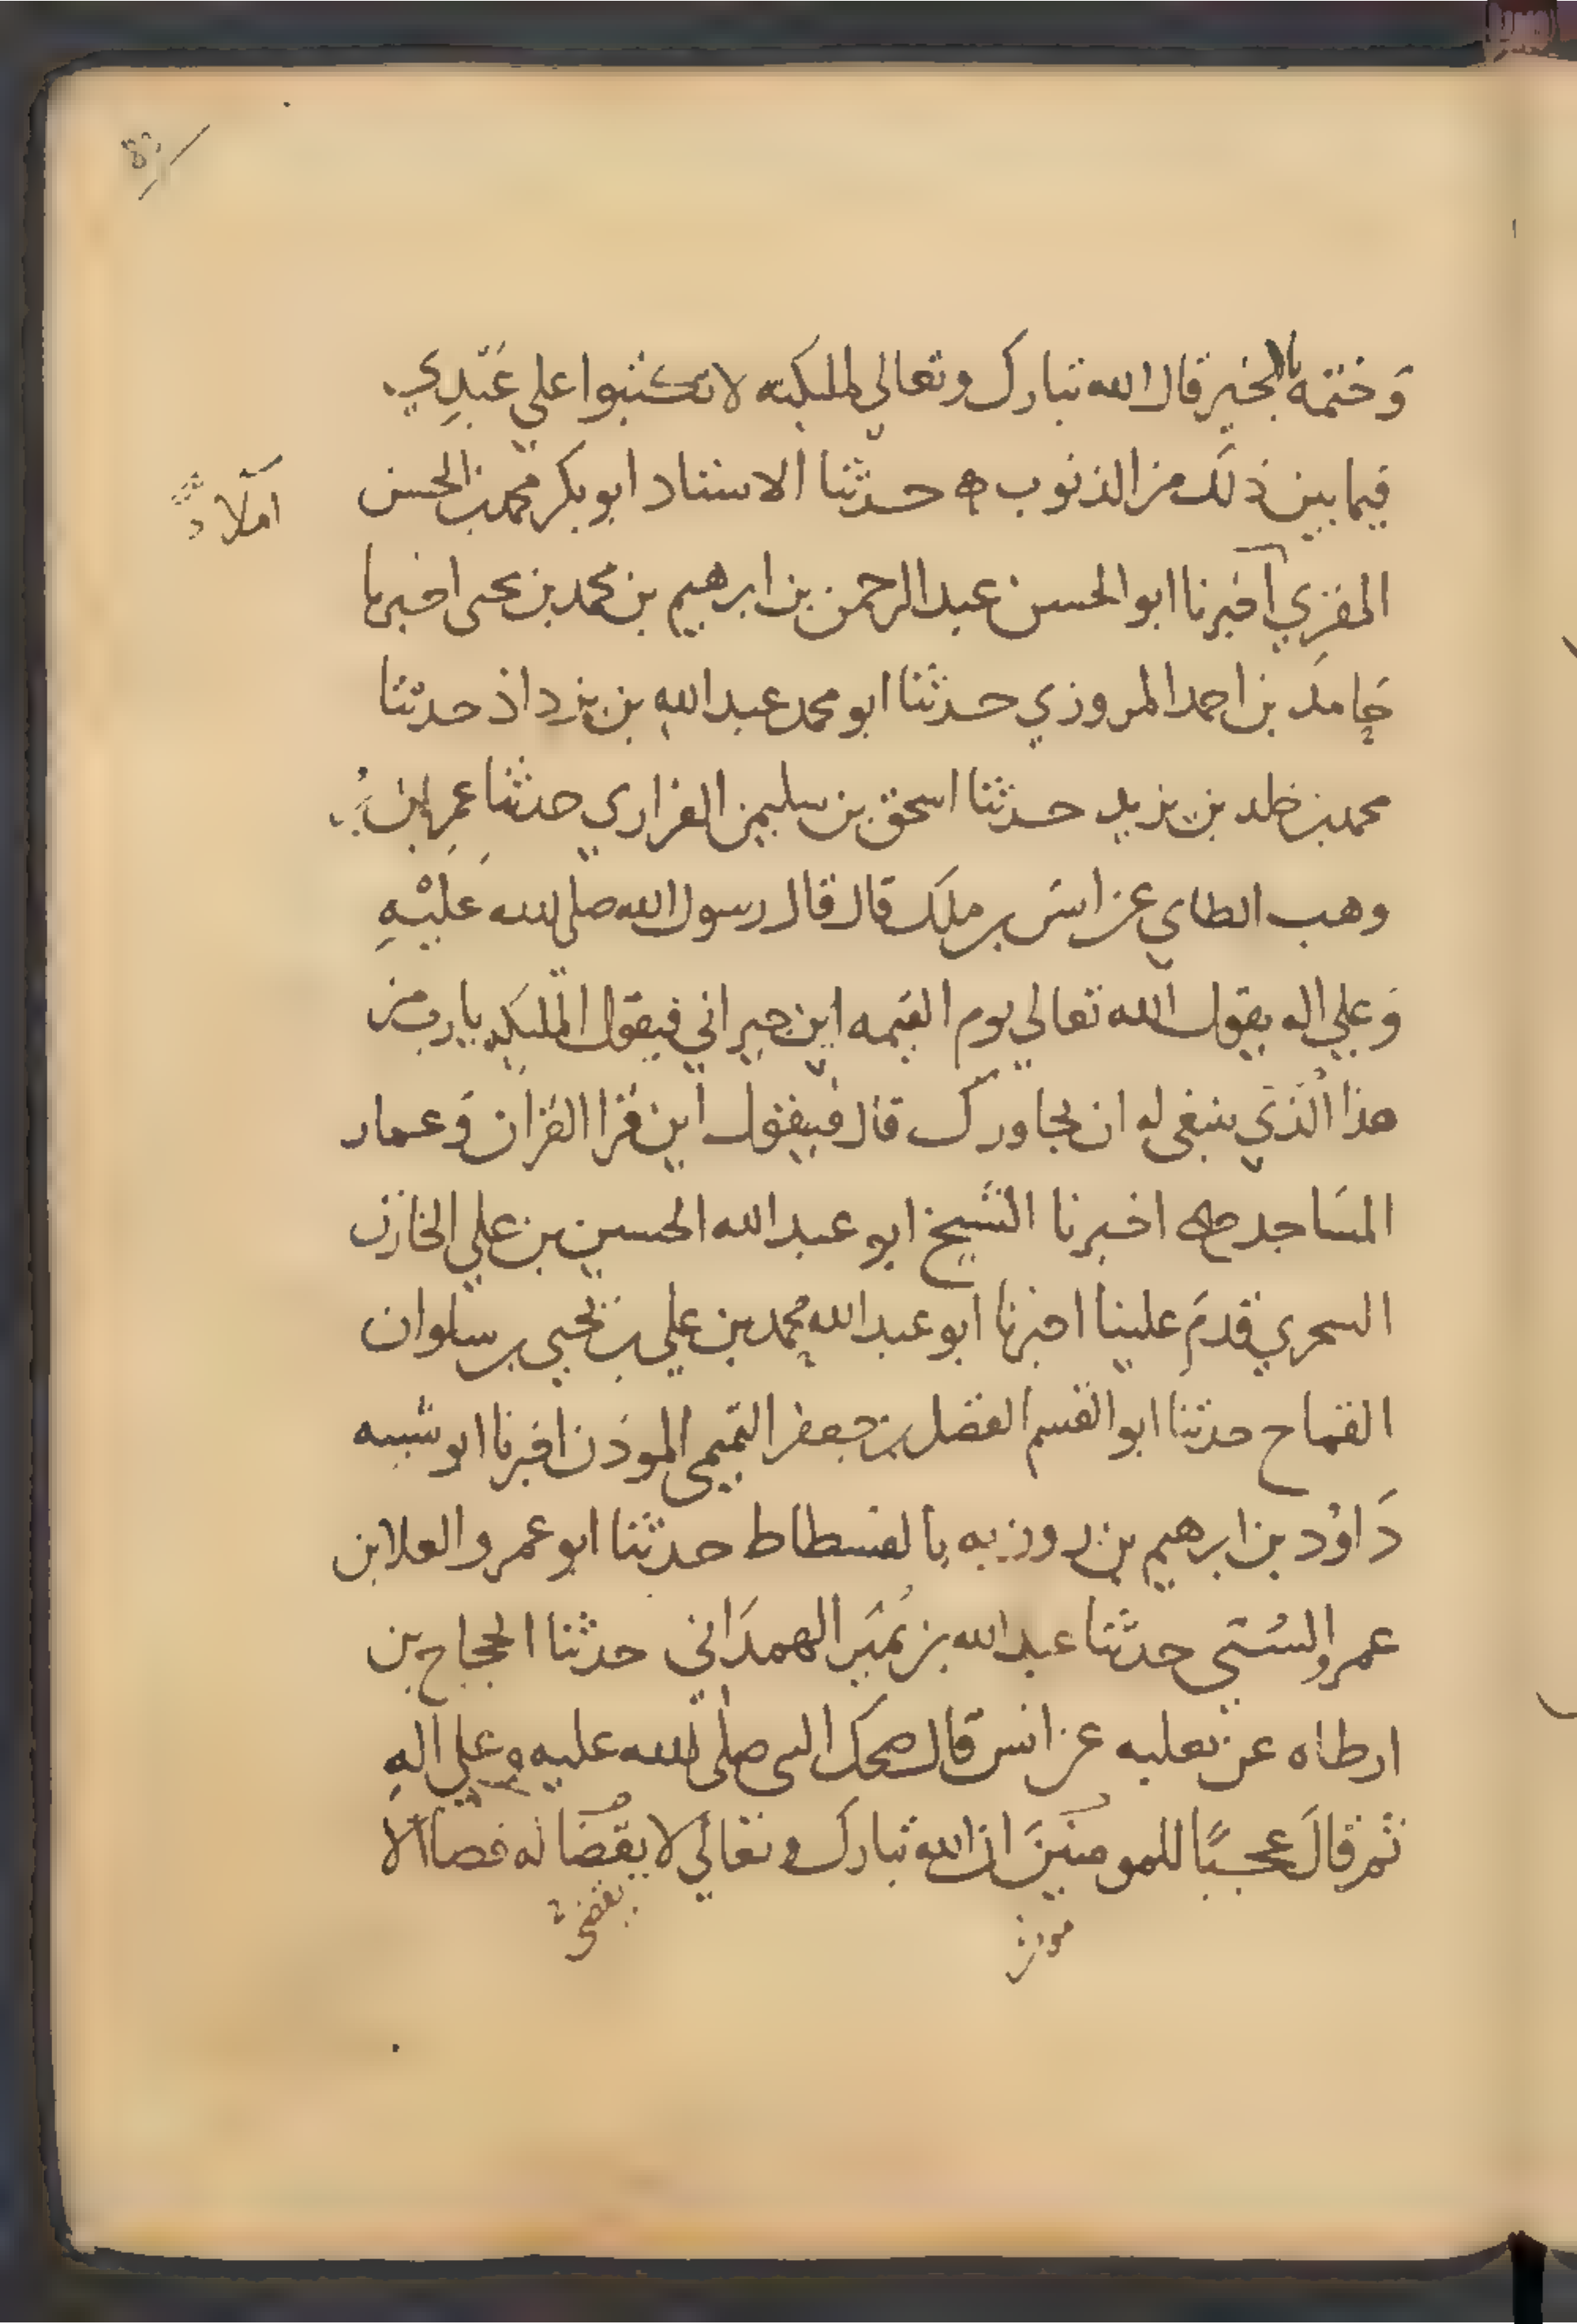 وَختمه بالخير قال الله تبارك وتعالي لملـٰيكته لا تكتبوا علي عَبْدِي
فيما بين ذلك من الذنوب ه حدثنا الاستاد ابو بكر محمد بن الحسن
املا
المقري اخبرنا ابو الحسن عبد الرحمن بن ابرهيم بن محمد بن يحيى اخبرنا
حَامد بن احمد المروزي حدثنا ابو محمد عبد الله بن يزداذ حدثنا
محمد بن خلد بن يزيد حدثنا اسحق بن سليمن الفزاري حدثنا عمران بن
وهب الطاي عن انس بن ملك قال قال رسول الله صلى الله عَلَيْهِ
وَعلي اله يقول الله تعالي يوم القيمه اين جيراني فيقول الملـٰيكه يا رب من
هذا الّذي ينبغي له ان يجاورك قال فيقول اين قرا القران وَعمار
المسَاجد اخبرنا الشيخ ابو عبد الله الحسين بن علي الخازن
السمري قدم علينا اخبرنا ابو عبد الله محمد بن علي بن يحيي بن سلوان
القماح حدثنا ابو القسم الفضل بن جعفر التميمي الموذن اخبرنا ابو شيبه
دَاوُد بن ابرهيم بن روزبه بالفسطاط حدثنا ابو عمرو العلا بن
عمرو السني حدثنا عبد الله بن نُمَيْر الهمدَاني حدثنا الحجاج بن
ارطاه عن ثعلبه عن انس قال ضحك النبي صلى الله عليه وعلى الهِ
ثم قالَ عجبًا للمومنينَ ان الله تبارك وتعالي لا يقضا له قضا الا
يقضي
مومن